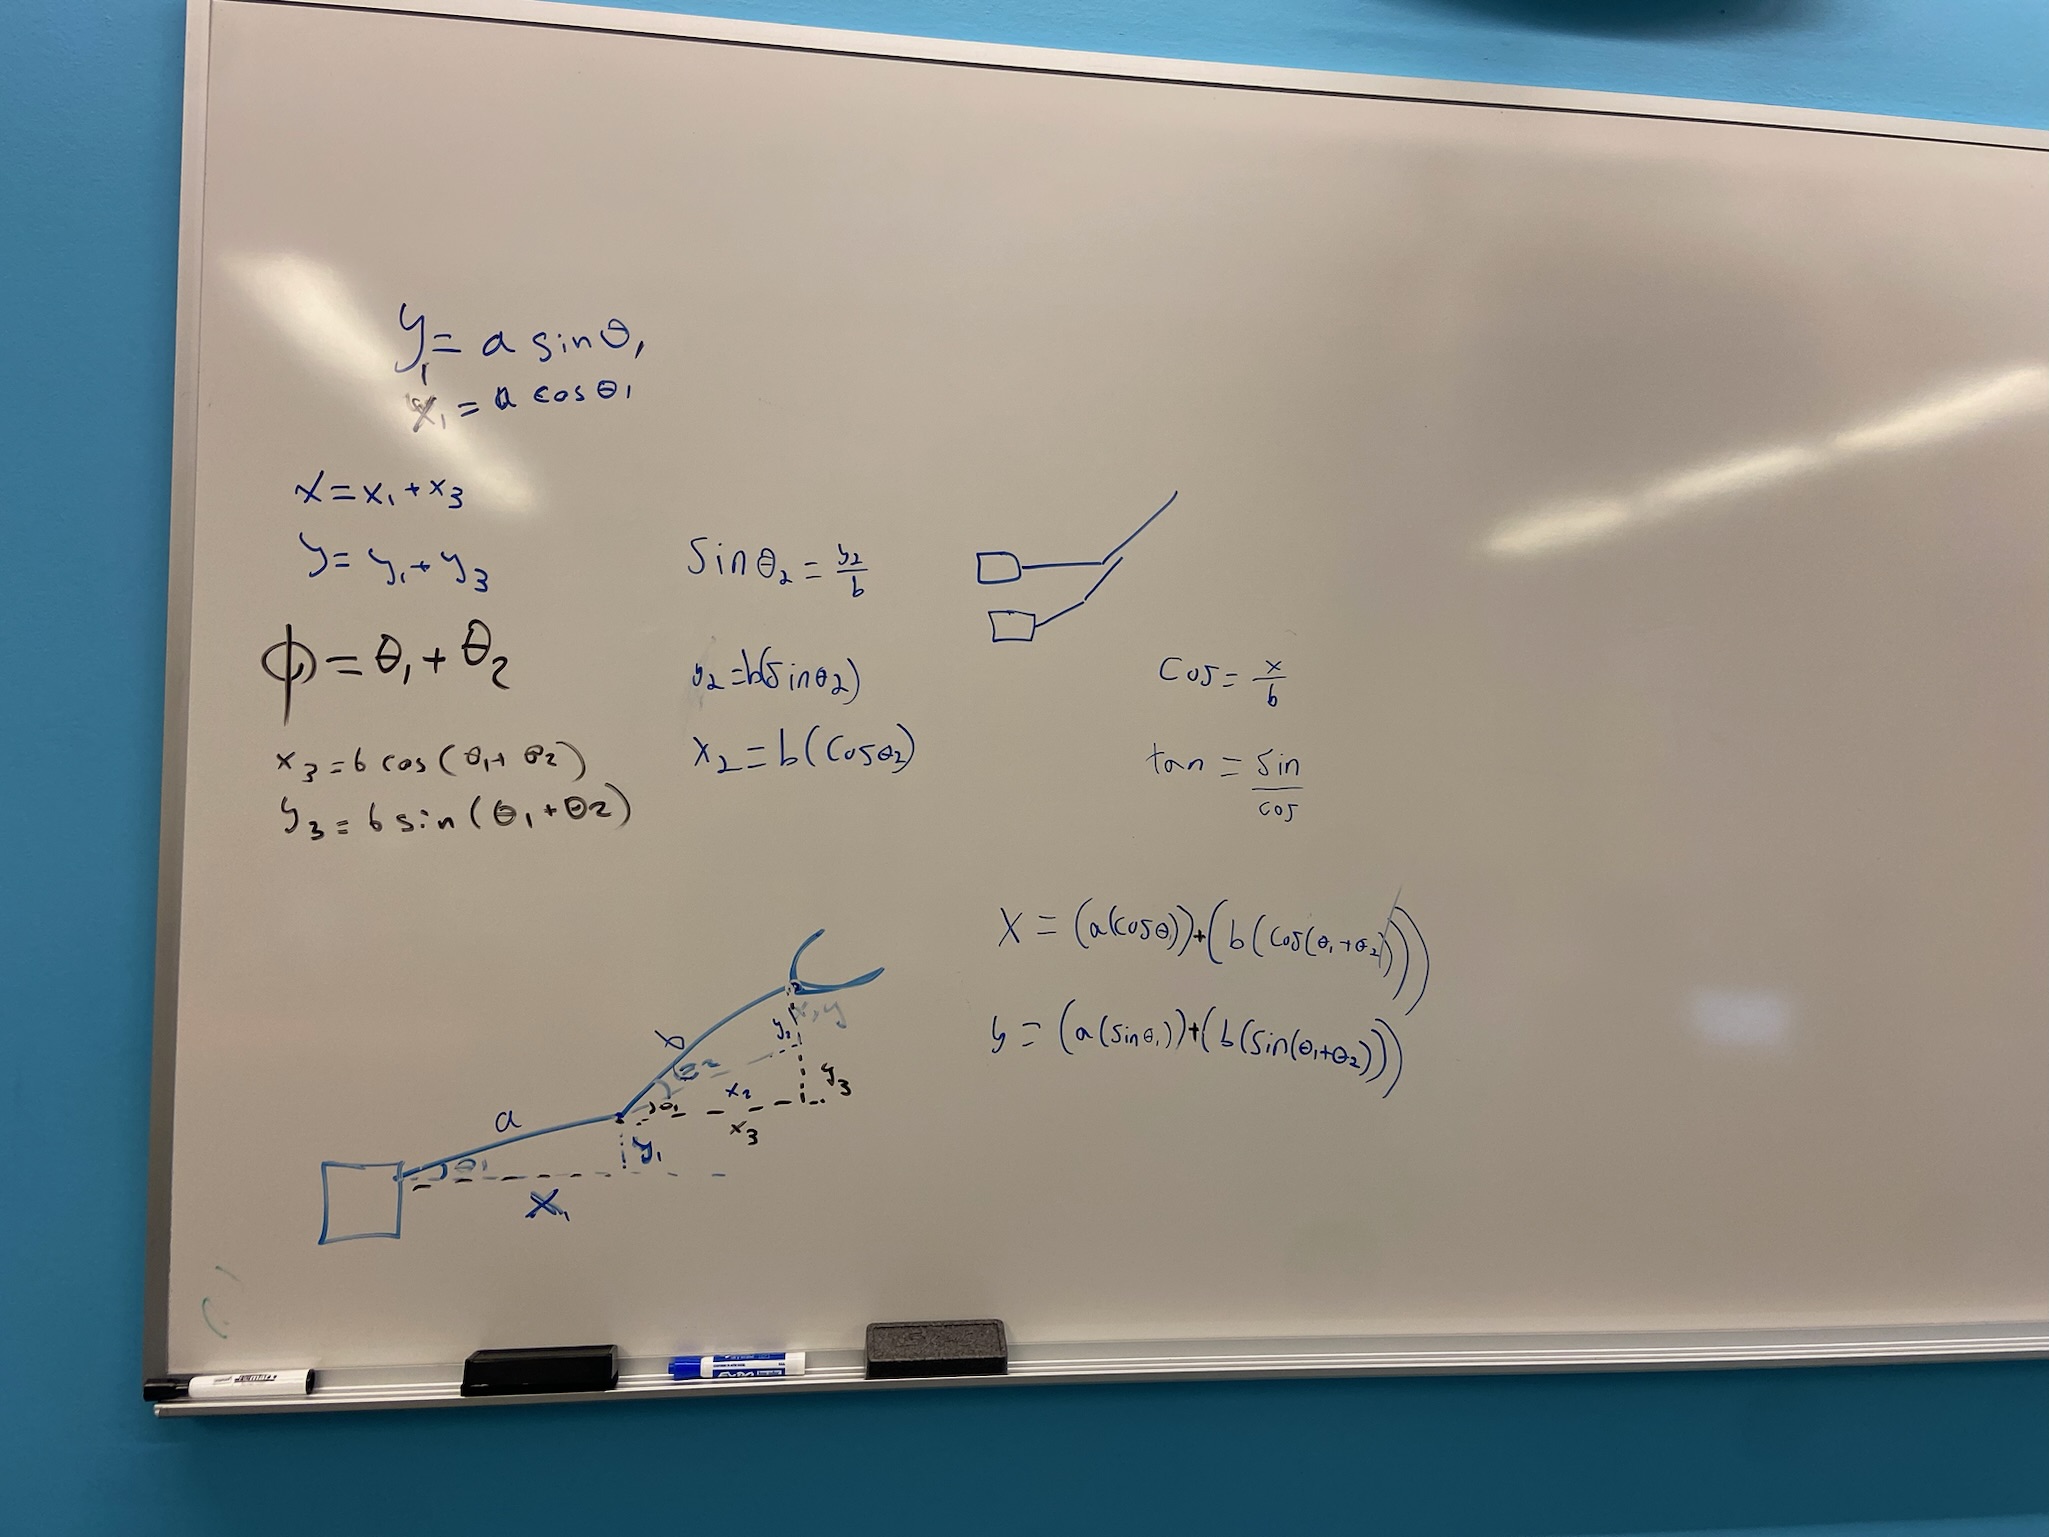 y₁ = a sin θ₁
x₁ = a cos θ₁
x = x₁ + x₃
y = y₁ + y₃
ϕ = θ₁ + θ₂
x₃ = b cos (θ₁ + θ₂)
y₃ = b sin (θ₁ + θ₂)
Sin θ₂ = y₂/b
y₂ = b(Sin θ₂)
x₂ = b (Cos θ₂)
Cos = x/b
tan = Sin/cos
X = (a(cos θ₁)) + (b (Cos(θ₁ + θ₂)))
y = (a (Sin θ₁)) + (b (Sin(θ₁ + θ₂)))
x, y
b
y₂
θ₂
y₃
x₂
θ₁
x₃
a
y₁
θ₁
X₁
EXPO